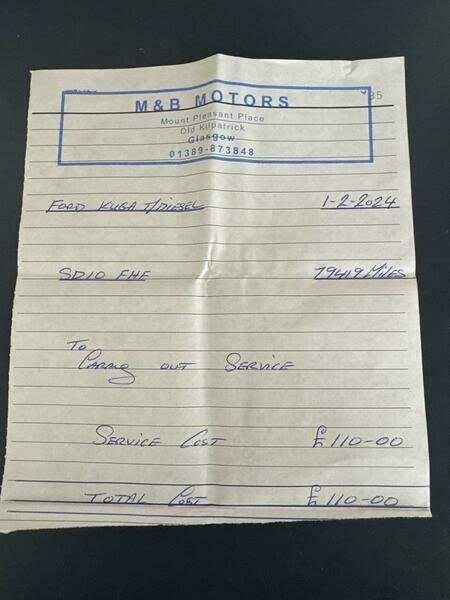 35
M&B MOTORS
Mount Pleasant Place
Old Kilpatrick
Glasgow
01389-873848
FORD KUGA T/DIESEL 1-2-2024
SD10 FHF 79419 MILES
TO
CARRING OUT SERVICE
SERVICE COST £110-00
TOTAL COST £110-00